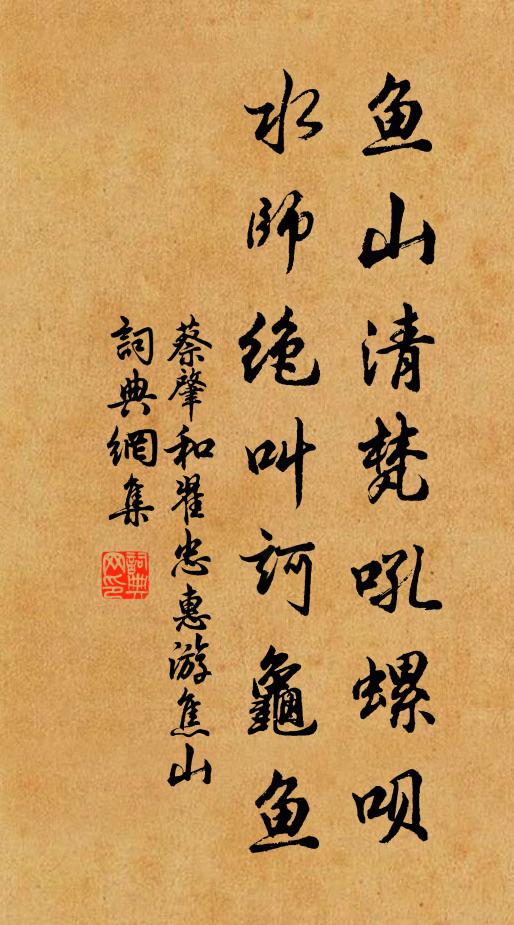 鱼山清梵吼螺呗
水師绝叫訶龜鱼
蔡肇和翟忠惠游焦山
詞典網集
詞典网印